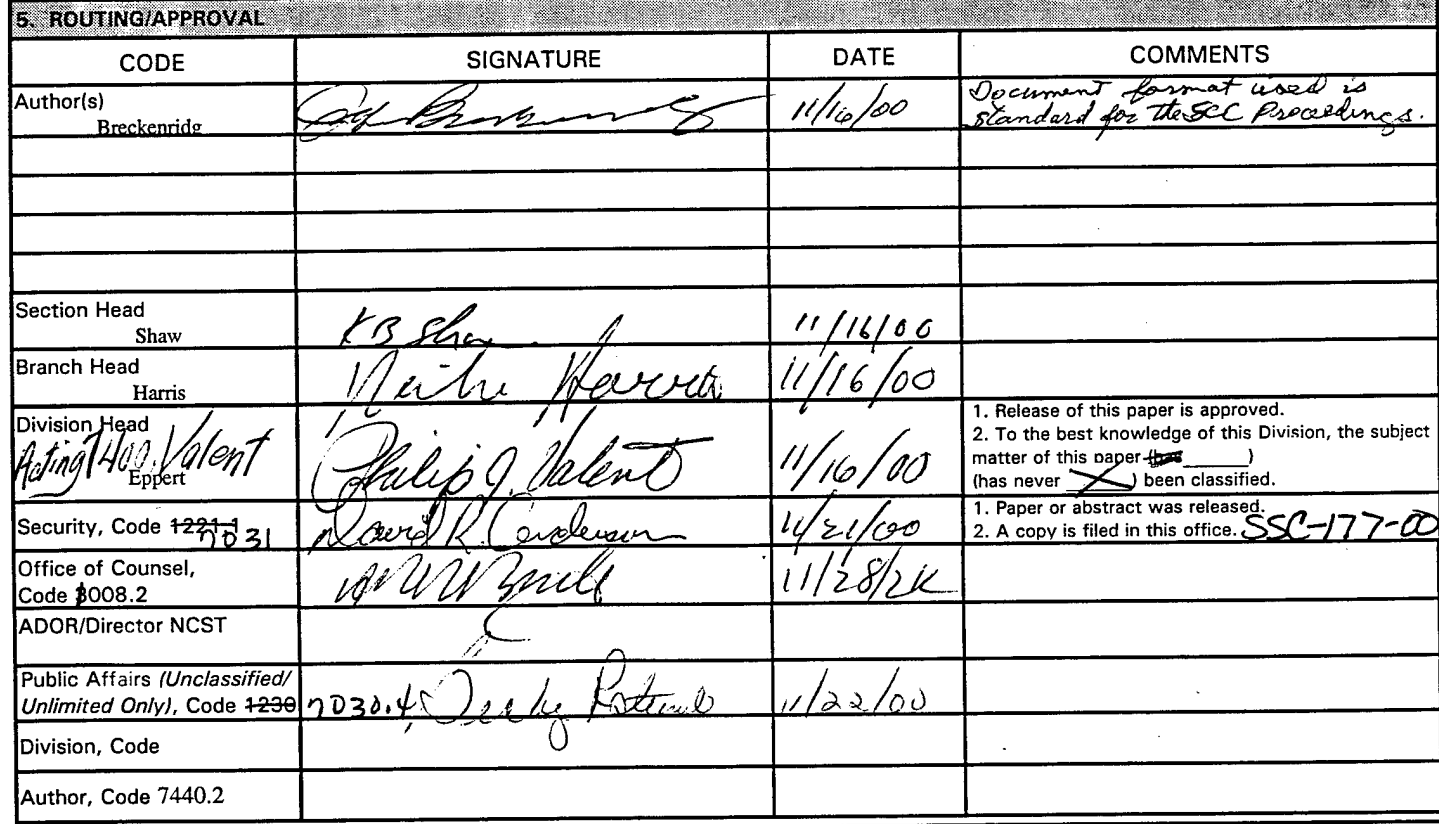 5. ROUTING/APPROVAL
CODE SIGNATURE DATE COMMENTS
Author(s)
Breckenridg
11/16/00
Document format used is
standard for the SCC Proceedings.
Section Head
Shaw
KB Shaw
11/16/00
Branch Head
Harris
Harris
11/16/00
Division Head
Acting 7400, Valent
Eppert
Philip J. Valent
11/16/00
1. Release of this paper is approved.
2. To the best knowledge of this Division, the subject
matter of this paper (has ______)
(has never X) been classified.
Security, Code 1221.1
7031
David R.
11/21/00
1. Paper or abstract was released.
2. A copy is filed in this office. SSC-177-00
Office of Counsel,
Code 3008.2
11/28/2K
ADOR/Director NCST
Public Affairs (Unclassified/
Unlimited Only), Code 1230
7030.4
11/22/00
Division, Code
Author, Code 7440.2